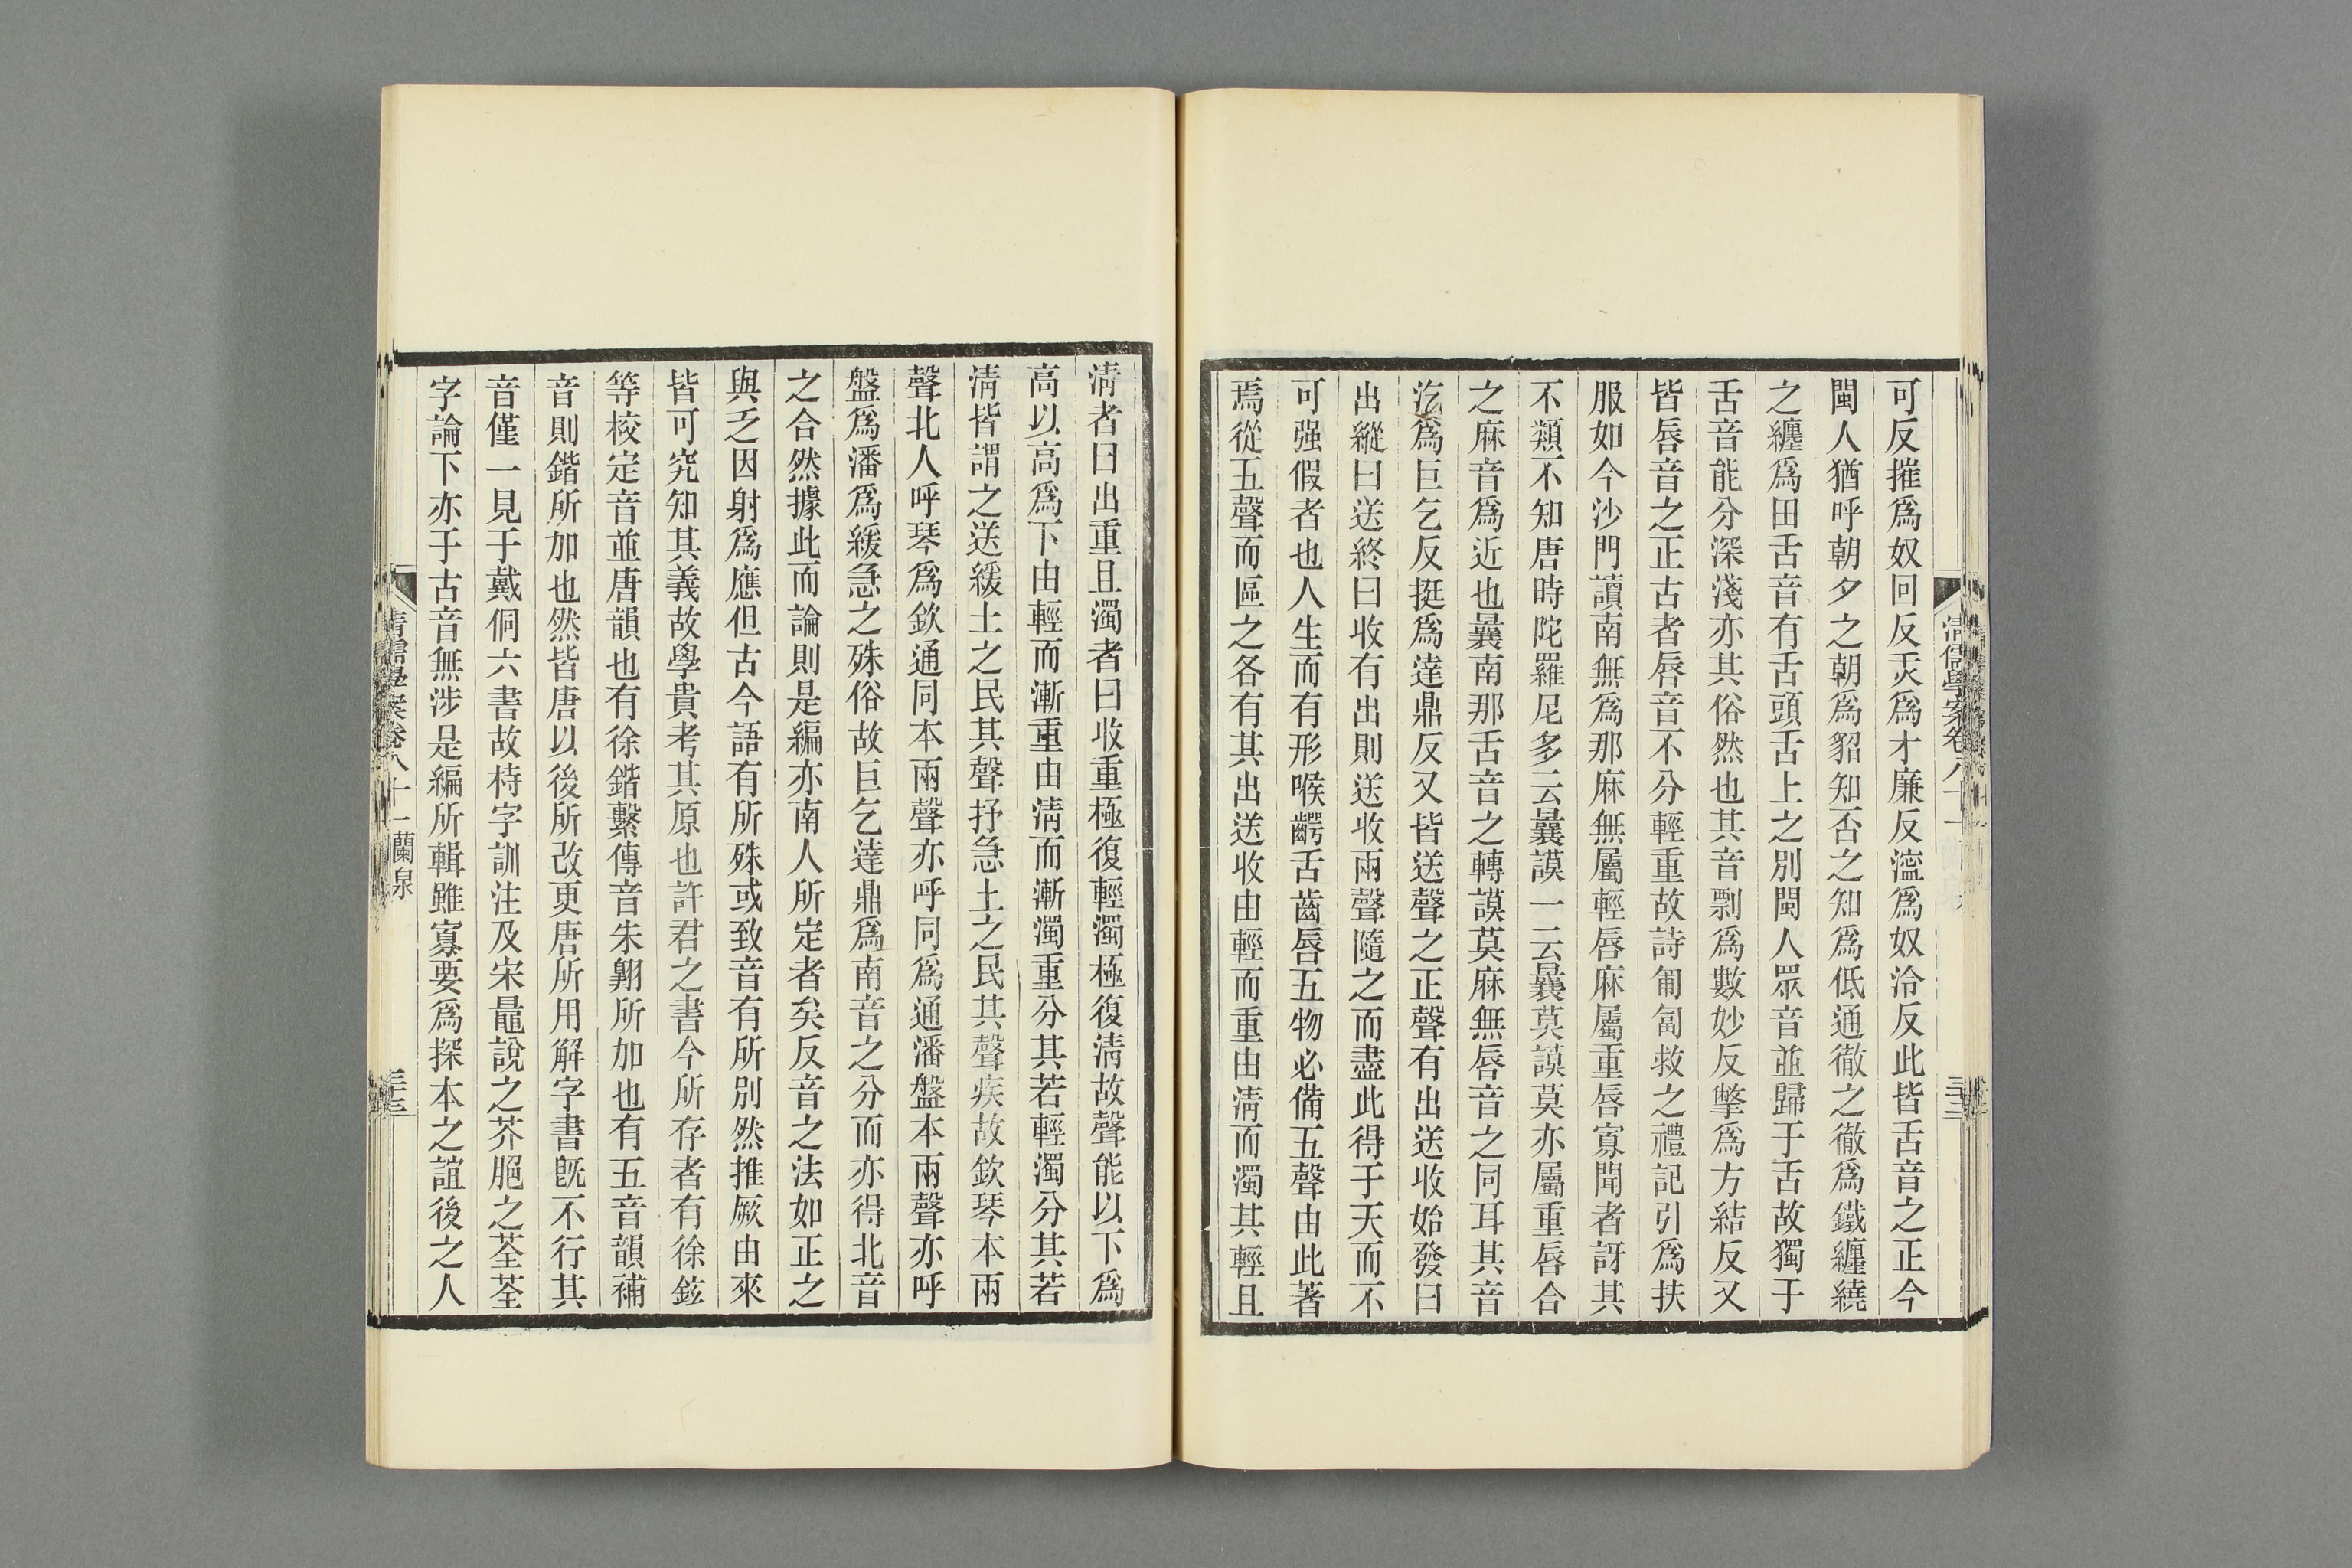 可反摧爲奴回反灾爲才廉反溋爲奴洽反此皆舌音之正今
閩人猶呼朝夕之朝爲貂知否之知爲低通徹之徹爲鐵纏繞
之纏爲田舌音有舌頭舌上之別閩人眾音並歸于舌故獨于
舌音能分深淺亦其俗然也其音剽爲數妙反擎爲方結反又
皆唇音之正古者唇音不分輕重故詩匍匐救之禮記引爲扶
服如今沙門讀南無爲那麻無屬輕唇麻屬重唇寡聞者訝其
不類不知唐時陀羅尼多云曩謨一云曩莫謨莫亦屬重唇合
之麻音爲近也曩南那舌音之轉謨莫麻無唇音之同耳其音
汔爲巨乞反挺爲達鼎反又皆送聲之正聲有出送收始發曰
出縱曰送終曰收有出則送收兩聲隨之而盡此得于天而不
可强假者也人生而有形喉齶舌齒唇五物必備五聲由此著
焉從五聲而區之各有其出送收由輕而重由淸而濁其輕且
淸者曰出重且濁者曰收重極復輕濁極復淸故聲能以下爲
高以高爲下由輕而漸重由淸而漸濁重分其若輕濁分其若
淸皆謂之送緩土之民其聲抒急土之民其聲疾故欽琴本兩
聲北人呼琴爲欽通同本兩聲亦呼同爲通潘盤本兩聲亦呼
盤爲潘爲緩急之殊俗故巨乞達鼎爲南音之分而亦得北音
之合然據此而論則是編亦南人所定者矣反音之法如正之
與乏因射爲應但古今語有所殊或致音有所別然推厥由來
皆可究知其義故學貴考其原也許君之書今所存者有徐鉉
等校定音並唐韻也有徐鍇繫傳音朱翺所加也有五音韻補
音則鍇所加也然皆唐以後所改更唐所用解字書旣不行其
音僅一見于戴侗六書故㭙字訓注及宋鼂說之芥脃之荃荃
字論下亦于古音無涉是編所輯雖寡要爲探本之誼後之人
清儒學案卷八十一 蘭泉
三十三